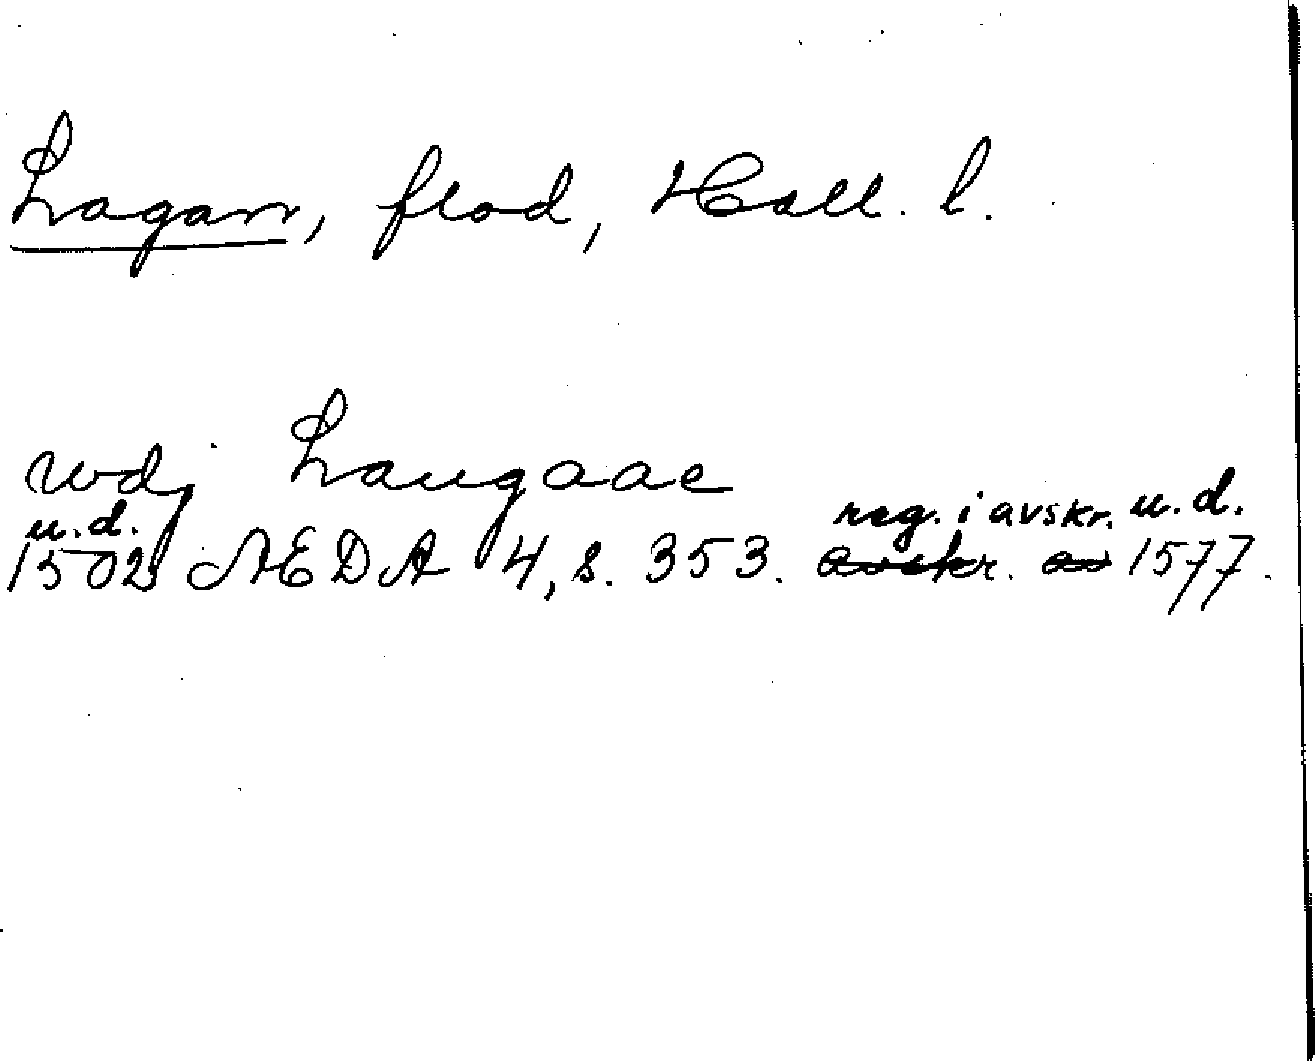 Lagan, flod, Hall. l.
wdj Laugaae
u.d. reg. i avskr. u.d.
1502 ÆDA 4, s. 353. avskr. av 1577.